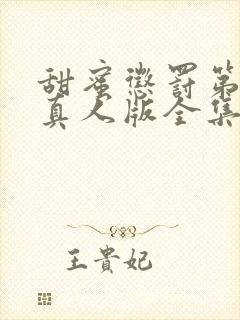 甜蜜惩罚第
真人版全集
王貴妃